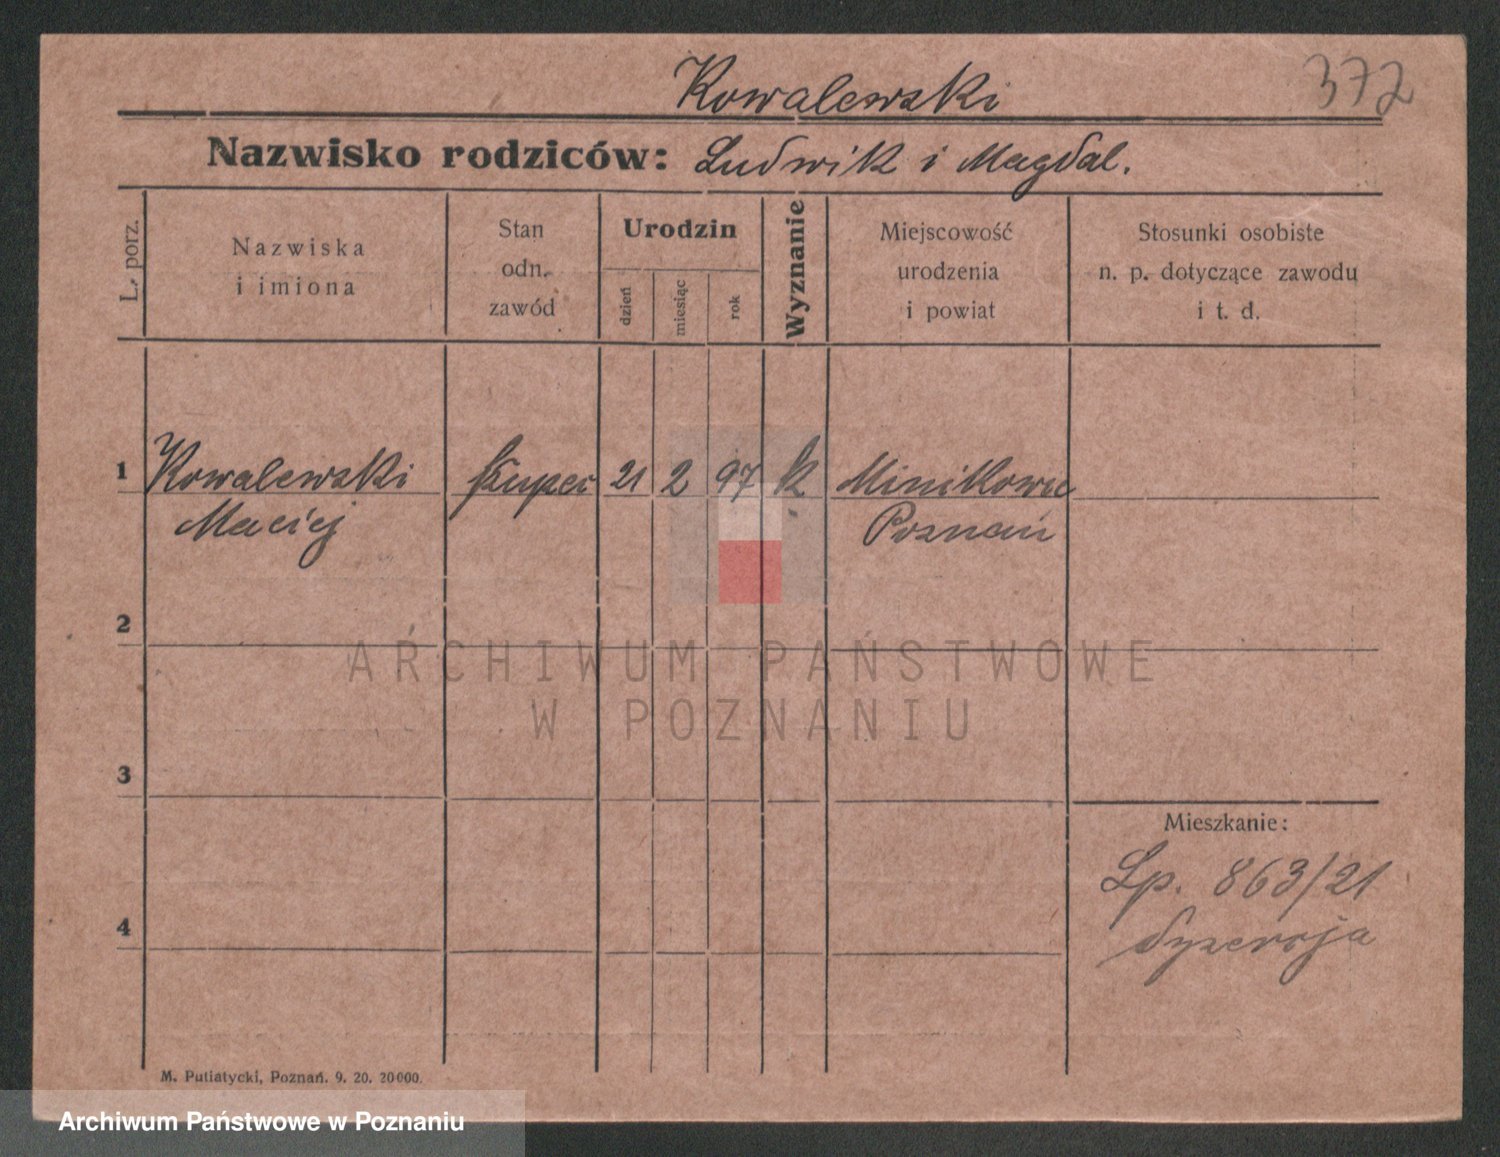 Kowalewski
372
Nazwisko rodziców: Ludwik i Magdal.
L. porz.
Nazwiska
i imiona
Stan
odn.
zawód
Urodzin
dzień
miesiąc
rok
Wyznanie
Miejscowość
urodzenia
i powiat
Stosunki osobiste
n. p. dotyczące zawodu
i t. d.
1 Kowalewski kupiec 21 2 97 k Minikowo
Maciej Poznań
2
ARCHIWUM PAŃSTWOWE
W POZNANIU
3
Mieszkanie:
Lp. 863/21
4
M. Putiatycki, Poznań. 9. 20. 20000.
Archiwum Państwowe w Poznaniu